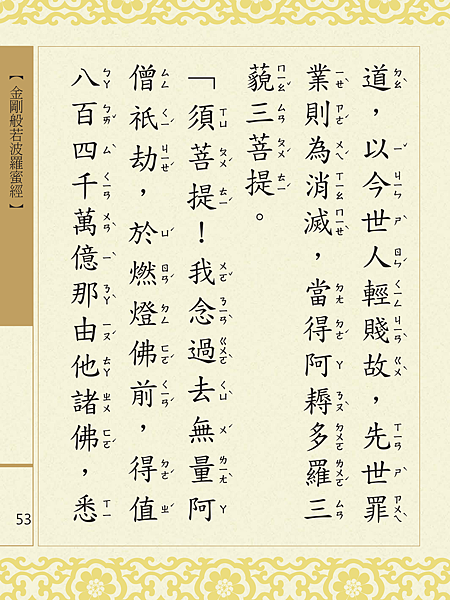 道，以今世人輕賤故，先世罪
業則為消滅，當得阿耨多羅三
藐三菩提。
「須菩提！我念過去無量阿
僧祇劫，於燃燈佛前，得值
八百四千萬億那由他諸佛，悉
【金剛般若波羅蜜經】
53